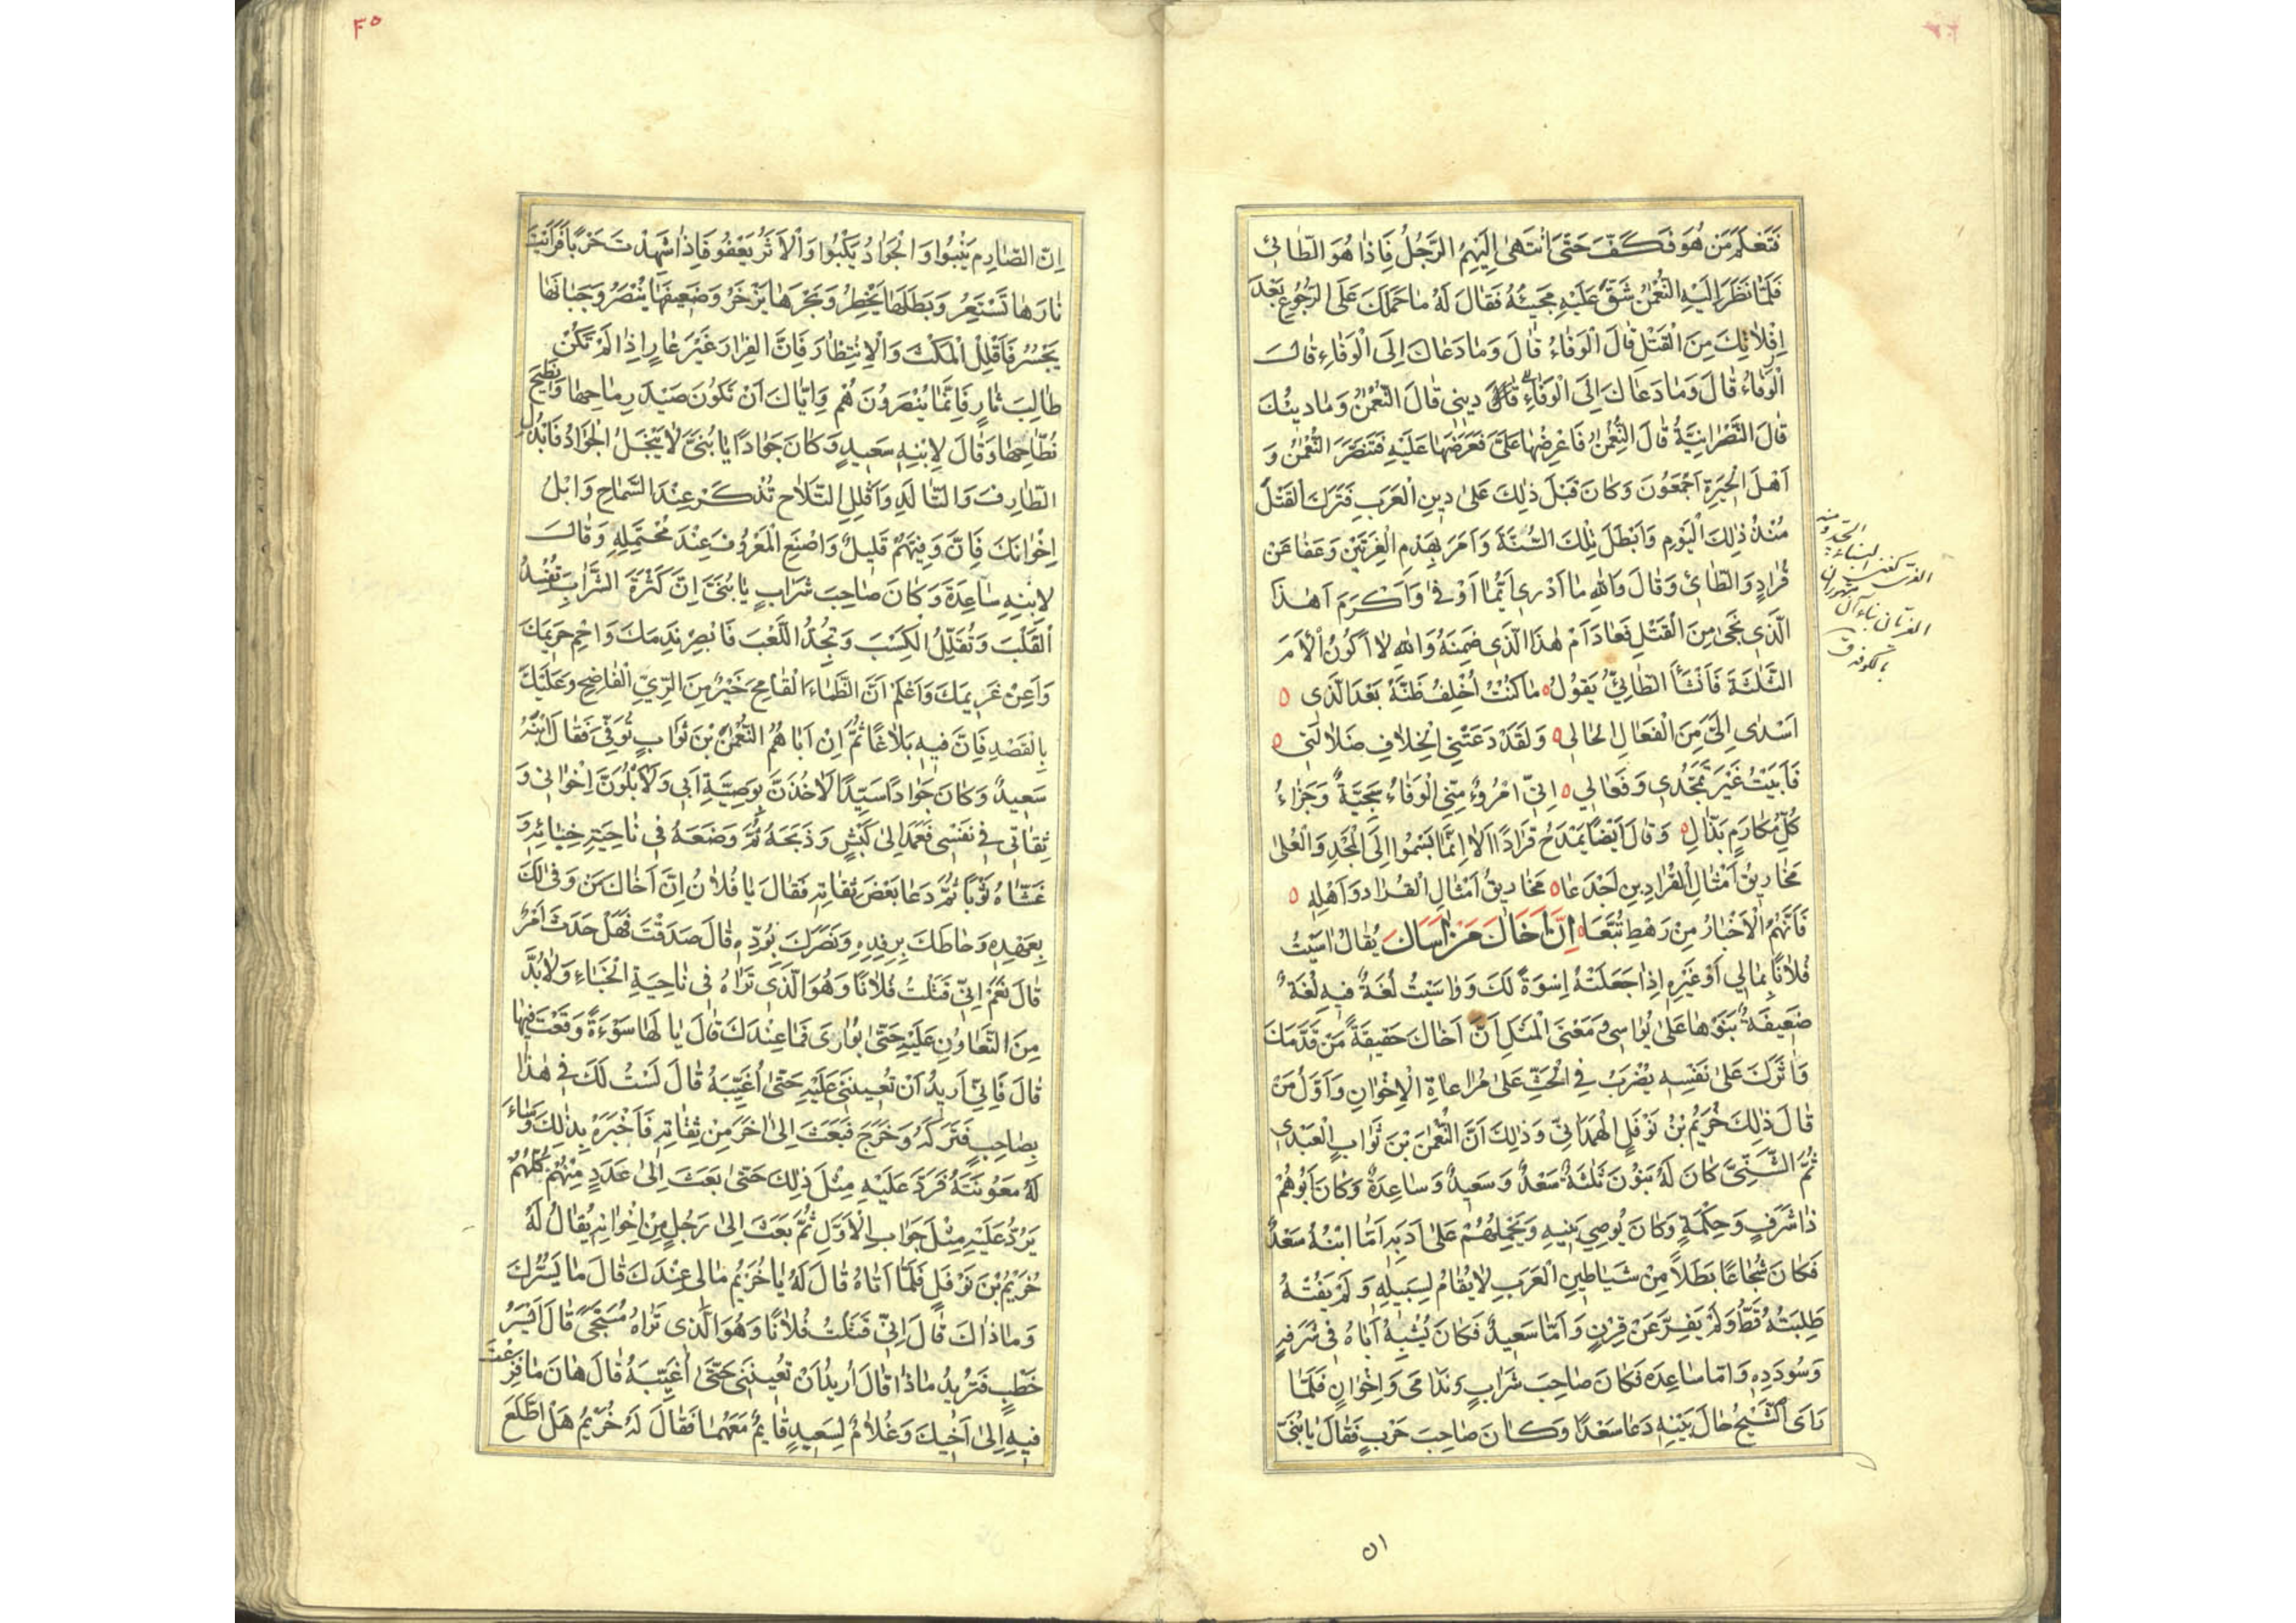 فَتَعْلَمَ مَن هُوَ فَكَفَّ حَتّٰى انتَهىٰ اِلَيْهِمُ الرَّجُلُ فَاِذا هُوَ الطّائِيُّ
فَلَمّا نَظَرَ اِلَيْهِ النُّعْمٰنُ شَقَّ عَلَيْهِ مَجيئُهُ فَقالَ لَهُ ما حَمَلَكَ عَلَى الرُّجُوعِ بَعْدَ
اِفْلاتِكَ مِنَ الْقَتْلِ قالَ الْوَفاءُ قالَ وَمادَعاكَ اِلَى الْوَفاءِ قالَ
الْوَفاءُ قالَ وَمادَعاكَ اِلَى الْوَفاءِ قالَ ديني قالَ النُّعْمٰنُ وَمادينُكَ
قالَ النَّصْرانِيَّةُ قالَ النُّعْمٰنُ فَاعْرِضْها عَلَيَّ فَعَرَضَها عَلَيْهِ فَتَنَصَّرَ النُّعْمٰنُ وَ
اَهْلُ الْحِيَرةِ اَجْمَعُونَ وَكانَ قَبْلَ ذٰلِكَ عَلىٰ دِينِ الْعَرَبِ فَتَرَكَ الْقَتْلَ
مُنْذُ ذٰلِكَ الْيَوْمِ وَاَبْطَلَ تِلْكَ السُّنَّةَ وَاَمَرَ بِهَدْمِ الْغَرِيَّيْنِ وَعَفا عَنْ
قُرادٍ وَالطّائِيِّ وَقالَ وَاللّٰهِ ما اَدْري اَيُّهُما اَوْفىٰ وَاَكْرَمَ اَهٰذا
الَّذي نَجىٰ مِنَ الْقَتْلِ فَعادَ اَمْ هٰذَا الَّذي ضَمِنَهُ وَاللّٰهِ لا اَكُونُ اَلْاَمَ
الثَّلثَةِ فَاَنْشَأَ الطّائِيُّ يَقُولُ ه ماكُنْتُ اُخْلِفُ ظَنَّهُ بَعْدَ الَّذي ه
اَسْدٰى اِلَيَّ مِنَ الْفَعالِ الْخالي ه وَلَقَدْ دَعَتْنِي الْخِلافِ ضَلالَتي ه
فَاَبَيْتُ غَيْرَ تَمَجُّدي وَفَعالي ه اِنّي امْرُؤٌ مِنّي الْوَفاءُ سَجِيَّةٌ وَجَزاءُ
كُلِّ مُكارِمٍ بَذّالِ ه وَقالَ اَيْضًا يَمْدَحُ قُرادًا اَلا اِنَّما يَسْمُوا اِلَى الْمَجْدِ وَالْعُلىٰ
مَخاريقُ اَمْثالُ الْقُرادِ بنِ اَجْدَعا ه مَخاريقُ اَمْثالُ الْقُرادِ وَاَهْلِهِ ه
فَاِنَّهُمُ الْاَخْيارُ مِنْ رَهْطِ تُبَّعا ه اِنَّ اَخاكَ مَنْ اٰساكَ يُقالُ اٰسَيْتُ
فُلانًا بِمالي اَوْ غَيْرِهِ اِذا جَعَلَتْهُ اِسْوَةً لَكَ وَواسَيْتُ لُغَةٌ فيهِ لُغَةٌ
ضَعيفَةٌ بَنَوْها عَلىٰ يُواسي وَمَعْنَى الْمَثَلِ اَنَّ اَخاكَ حَقيقَةً مَنْ قَدَّمَكَ
وَاٰثَرَكَ عَلىٰ نَفْسِهِ يُضْرَبُ فِي الْحَثِّ عَلىٰ مُراعاةِ الْاِخْوانِ وَاَوَّلُ مَنْ
قالَ ذٰلِكَ خُزَيْمُ بْنُ نَوْفَلٍ الْهَمْدانِيُّ وَذٰلِكَ اَنَّ النُّعْمٰنَ بْنَ ثَوابٍ الْعَبْدي
ثُمَّ الشَّنِّيَّ كانَ لَهُ بَنُونَ ثَلثَةٌ سَعْدٌ وَسَعيدٌ وَساعِدَةُ وَكانَ اَبُوهُمْ
ذاشَرَفٍ وَحِكْمَةٍ وَكانَ يُوصي بَنيهِ وَيَحْمِلُهُمْ عَلىٰ اَدَبِهِ اَمّا ابْنُهُ سَعْدٌ
فَكانَ شُجاعًا بَطَلاً مِنْ شَياطينِ الْعَرَبِ لايُقامُ لِسَبيلِهِ وَلَمْ يَفُتْهُ
طَلِبَتُهُ قَطُّ وَلَمْ يَفِرَّ عَنْ قِرْنٍ وَاَمّا سَعيدٌ فَكانَ يُشْبِهُ اَباهُ في شَرَفِهِ
وَسُودَدِهِ وَامّا ساعِدَه فَكانَ صاحِبَ شَرابٍ وَنَدامىٰ وَاِخْوانٍ فَلَمّا
رَاَى الشَّيْخُ حالَ بَنيْهِ دَعا سَعْدًا وَكانَ صاحِبَ حَرْبٍ فَقالَ يابُنَيَّ
٥١
٤٥
اِنَّ الصّارِمَ يَنْبُوا وَالْجَوادُ يَكْبُوا وَالْاَثَرُ يَعْفُو فَاِذا شَهِدْتَ حَرْبًا فَرَاَيْتَ
نارَها تَسْتَعِرُ وَبَطَلَها يَخْطِرُ وَبَحْرَها يَزْخَرُ وَضَعيفَها يُنْصَرُ وَجَبانَها
يَجْسُرُ فَاَقْلِلِ الْمَكْثَ وَالْاِنْتِظارَ فَاِنَّ الفِرارَ غَيْرُ عارٍ اِذا لَمْ تَكُنْ
طالِبَ ثارٍ فَاِنَّما يُنْصَرُونَ هُمْ وَاِيّاكَ اَنْ تَكُونَ صَيْدَ رِماحِها وَنَطيحَ
نُطّاحِها وَقالَ لِابْنِهِ سَعيدٍ وَكانَ جَوادًا يا بُنَيَّ لا يَبْخَلُ الْجَوادُ فَابْذُلِ
الطّارِفَ وَالتّالَدِ وَاَقْلِلِ التَّلاحَ تُذْكَرْ عِنْدَ السَّماحِ وَابْلُ
اِخْوانَكَ فَاِنَّ وَفِيَّهُمْ قَليلٌ وَاصْنَعِ الْمَعْرُوفَ عِنْدَ مُحْتَمِلِهِ وَقالَ
لِابنِهِ ساعِدَةَ وَكانَ صاحِبَ شَرابٍ يا بُنَيَّ اِنَّ كَثْرَةَ الشَّرابِ تُفْسِدُ
الْقَلْبَ وَتُقَلِّلُ الكَسْبَ وَتُجِدُّ اللَّعْبَ فَابْصِرْ نَديمَكَ وَاحْمِ حَريمَكَ
وَاَعِنْ غَريمَكَ وَاعْلَمْ اَنَّ الظَّماءَ الْقامِحَ خَيْرٌ مِنَ الرِّيِّ الْفاضِحِ وَعَلَيْكَ
بِالْقَصْدِ فَاِنَّ فيهِ بَلاغًا ثُمَّ اِنَّ اَباهُمُ النُّعْمٰنَ بْنَ ثَوابٍ تُوُفِّيَ فَقالَ ابْنُهُ
سَعيدٌ وَكانَ جَوادًا سَيِّدًا لَاٰخُذَنَّ بِوَصِيَّةِ اَبي وَلَاَبْلُوَنَّ اِخْواني وَ
ثِقاتي في نَفْسي فَعَمَدَ اِلىٰ كَبْشٍ وَذَبَحَهُ ثُمَّ وَضَعَهُ في ناحِيَةِ خِبائِهِ وَ
غَشّاهُ ثَوْبًا ثُمَّ دَعا بَعْضَ ثِقاتِهِ فَقالَ يا فُلانُ اِنَّ اَخاكَ مَنْ وَفىٰ لَكَ
بِعَهْدِهِ وَحاطَكَ بِرِفْدِهِ وَنَصَرَكَ بِوُدِّهِ قالَ صَدَقْتَ فَهَلْ حَدَثَ اَمْرٌ
قالَ نَعَمْ اِنّي قَتَلْتُ فُلانًا وَهُوَ الَّذي تَراهُ في ناحِيَةِ الْخِباءِ وَلابُدَّ
مِنَ التَّعاوُنِ عَلَيْهِ حَتّىٰ يُوارىٰ فَما عِنْدَكَ قالَ يا لَها سَوْءَةً وَقَعْتَ فيها
قالَ فَاِنّي اُريدُ اَنْ تُعينَني عَلَيْهِ حَتّىٰ اُغَيِّبَهُ قالَ لَسْتُ لَكَ في هٰذا
بِصاحِبٍ فَتَرَكَهُ وَخَرَجَ فَبَعَثَ اِلىٰ اٰخَرَ مِنْ ثِقاتِهِ فَاَخْبَرَهُ بِذٰلِكَ وَسَاَءَ
لَهُ مَعُونَتَهُ فَرَدَّ عَلَيْهِ مِثْلَ ذٰلِكَ حَتّىٰ بَعَثَ اِلىٰ عَدَدٍ مِنْهُمْ كُلُّهُمْ
يَرُدُّ عَلَيْهِ مِثْلَ جَوابِ الْاَوَّلِ ثُمَّ بَعَثَ اِلىٰ رَجُلٍ مِنْ اِخْوانِهِ يُقالُ لَهُ
خُزَيْمُ بْنَ نَوْفَلٍ فَلَمّا اَتاهُ قالَ لَهُ يا خُزَيْمُ مالي عِنْدَكَ قالَ ما يَسُرُّكَ
وَماذاكَ قالَ اِنّي قَتَلْتُ فُلانًا وَهُوَ الَّذي تَراهُ مُسَجًّى قالَ اَيْسَرُ
خَطْبٍ فَتُريدُ ماذا قالَ اُريدُ اَنْ تُعينَني حَتّىٰ اُغَيِّبَهُ قالَ هانَ ما فَزِعْتَ
فيهِ اِلىٰ اَخيكَ وَغُلامٌ لِسَعيدٍ قايِمٌ مَعَهُما فَقالَ لَهُ خُزَيْمُ هَلِ اطَّلَعَ